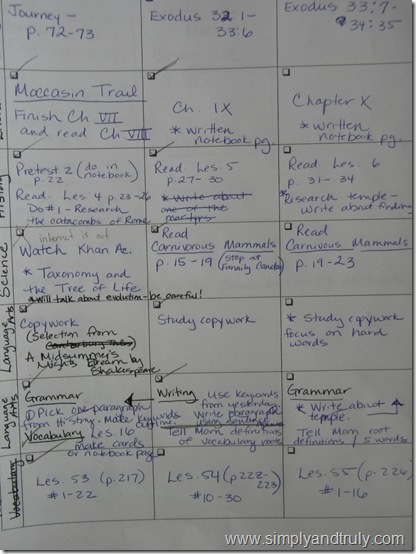 Journey -
p. 72-73
Exodus 32 1-
33:6
Exodus 33:7-
34:35
Moccasin Trail
Finish Ch VII
and read Ch VIII
Ch. IX
* Written
notebook pg.
Chapter X
* written
notebook pg.
History
Pretest 2 (do in
p.22 notebook)
Read Les. 4 p. 23-26
Do # - Research
the catacombs of Rome
Read Les. 5
p. 27-30
* Write about
one of the
martyrs
Read Les. 6
p. 31-34
*Research temple-
Write about finding
Science
internet is out
Watch Khan Ac.
* Taxonomy and
the Tree of Life
*Will talk about evolution - be careful!
Read
Carnivorous Mammals
p. 15-19 (Stop at
Family Canidae)
Read
Carnivous Mammals
p. 19-23
Language Arts
Copywork
(Selection from
Canterbury Tales)
A Midsummer's
Nights Dream by
Shakespeare
Study copywork
* Study copywork
focus on hard
words
Language
Arts
Grammar
① Pick one paragraph
from History. Make keywords outline.
Vocabulary Les. 16
make cards
or notebook page
Writing Use keywords
from yesterday.
Write paragraph
using
Tell Mom definitions
of vocabulary roots
Grammar
* Write about
temple.
Tell Mom root
definitions / 5 words
Vocabulary
Les. 53 (p. 217)
# 1-22
Les. 54 (p 222-
223)
# 10-30
Les. 55 (p. 226)
# 1-16
www.simplyandtruly.com